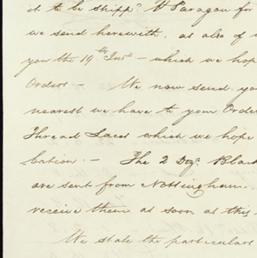 it to be shipp.d P Paragon for
we send herewith. as also of
you the 19th Inst - which we hop
Orders - We now send you
nearest we have to your Orde
Thread Laces which we hope
bation. - The 2 Doz. Black
are sent from Nottingham.
receive them as soon as this.
We state the particulars